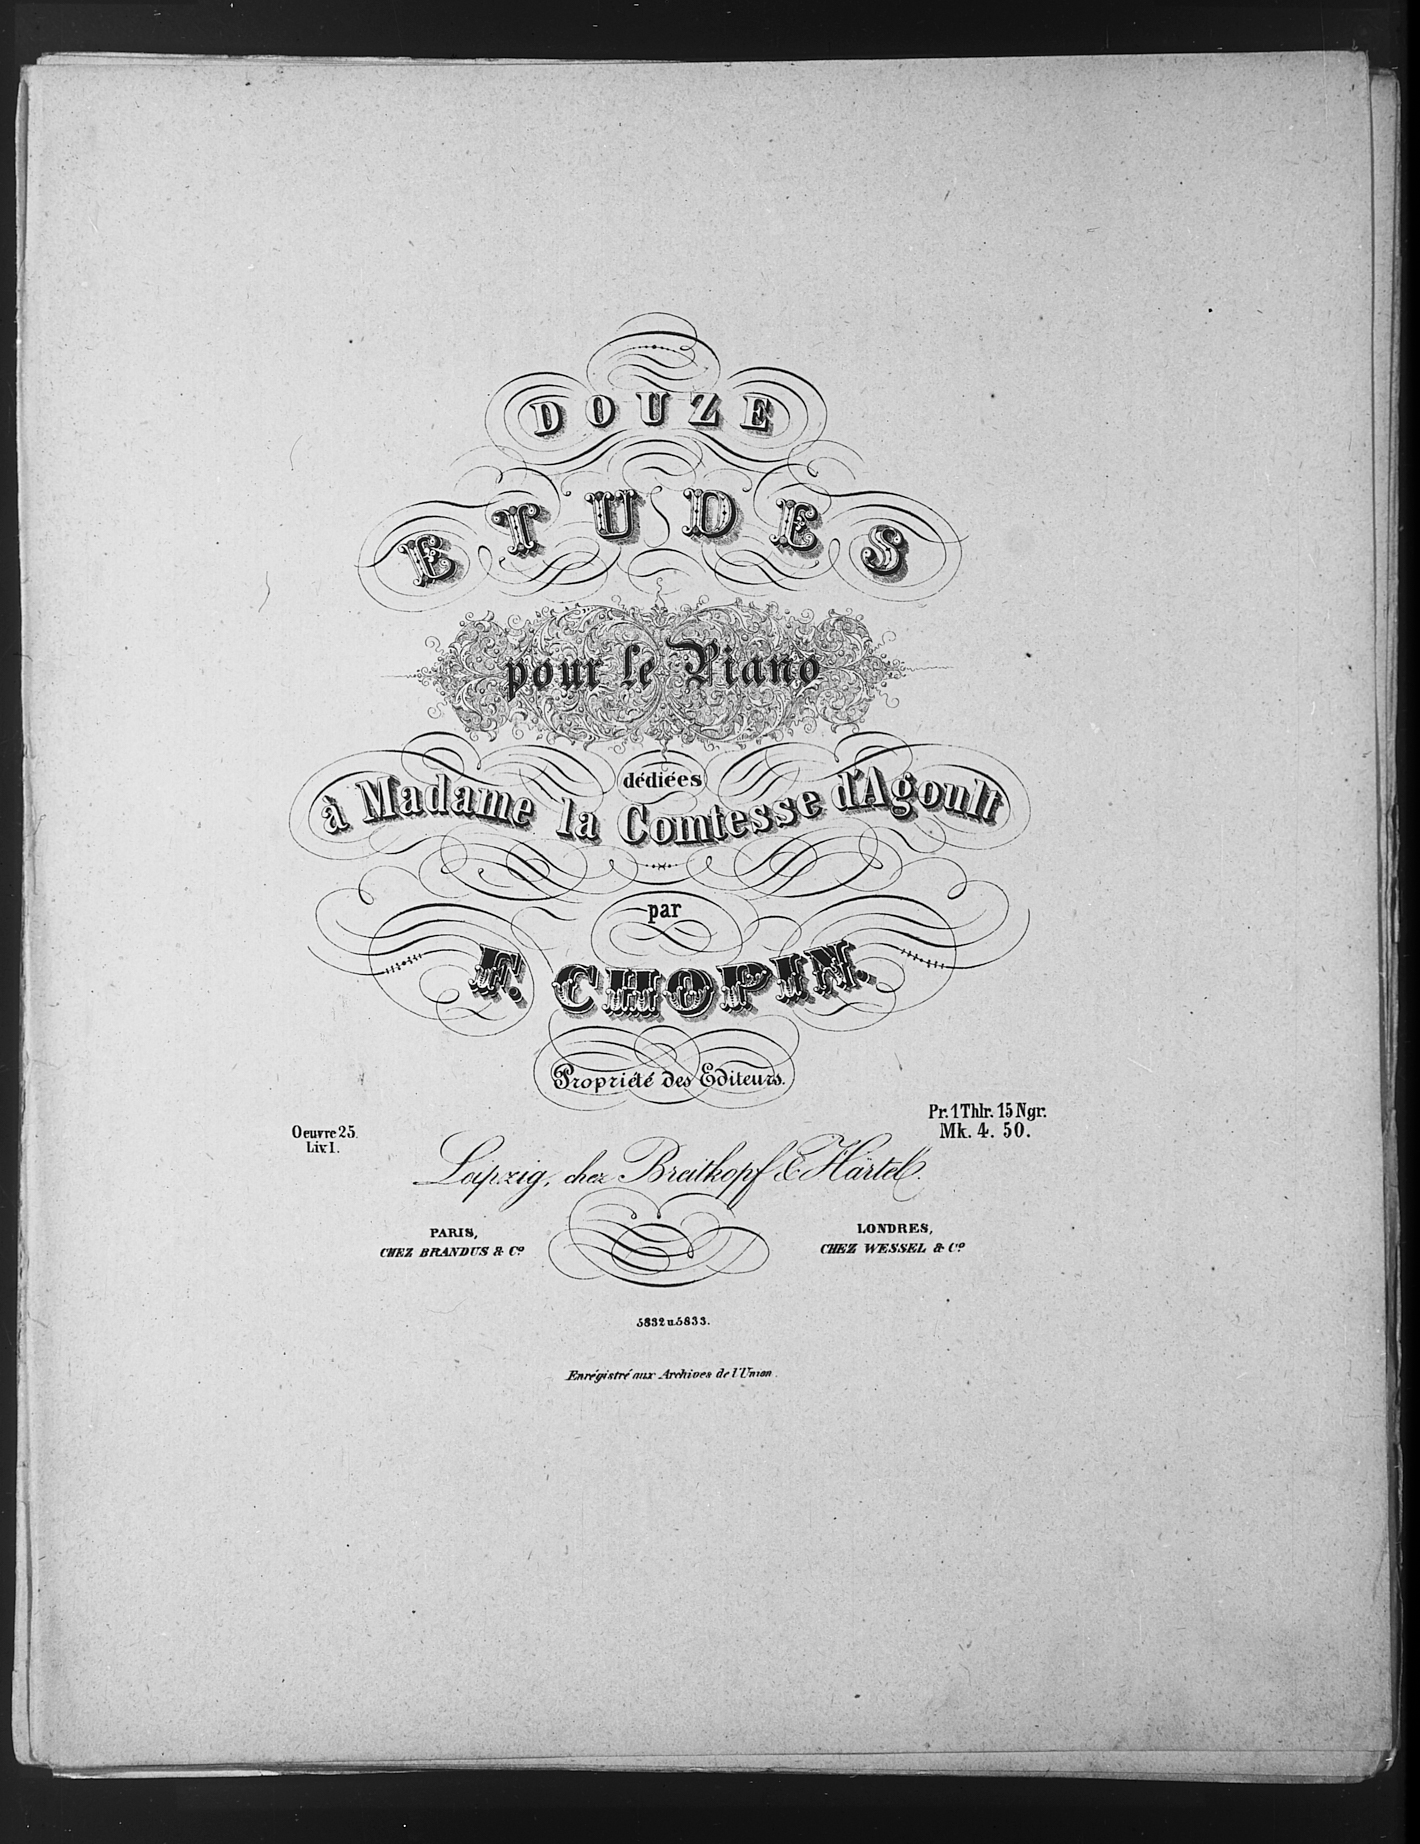 DOUZE
ETUDES
pour le Piano
dédiées
à Madame la Comtesse d'Agoult
par
F. CHOPIN.
Propriété des Editeurs.
Pr. 1 Thlr. 15 Ngr.
Mk. 4. 50.
Oeuvre 25.
Liv. I.
Leipzig, chez Breitkopf & Härtel.
PARIS,
CHEZ BRANDUS & Cº
LONDRES,
CHEZ WESSEL & Cº
5832 u. 5833.
Enrégistré aux Archives de l'Union.